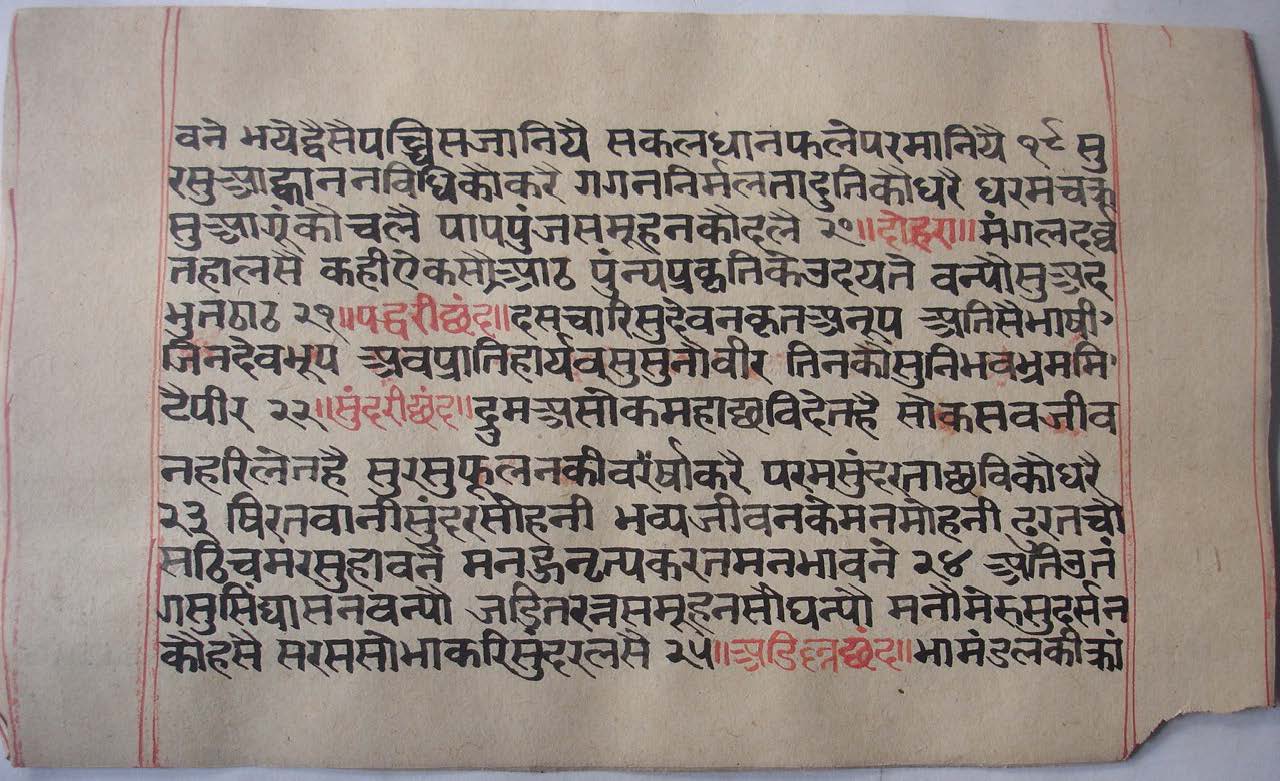 वने भयेद्वैसैपच्चिसजानियै सकलधानफलेपरमानियै १९ सु
रसुआह्वाननविधिकौकरै गगननिर्मलतादुतिकौधरै धरमचक्र
सुआगूंकौचलै पापपुंजसमूहनकौदलै २०॥दोहरा॥मंगलदर्व्व
तहालसै कहीऐकसौआठ पुंन्यप्रकृतिकेउदयतै वन्यौसुअद
भुतठाठ २१॥पद्धरीछंद॥दसचारिसुदेवनकृतअनूप अतिसैभाषी
जिनदेवभूप अवप्रातिहार्यवसुसुनौवीर तिनकौसुनिभवभ्रममि
टैपीर २२॥सुंदरीछंद॥द्रुमअसोकमहाछविदेतहै सोकसवजीव
नहरिलेतहै सुरसुफूलनकीवर्षाकरै परमसुंदरताछविकौधरै
२३ षिरतवानीसुंदरसोहनी भव्यजीवनकेमनमोहनी ढरतचौ
सठिचमरसुहावने मनहुनृत्यकरतमनभावने २४ अतिउतं
गसुसिंघासनवन्यौ जडितरत्नसमूहनसौघन्यौ मनौमेरुसुदर्सन
कौहसै सरससोभाकरिसुंदरलसै २५॥अडिल्लछंद॥भामंडलकीक्रां